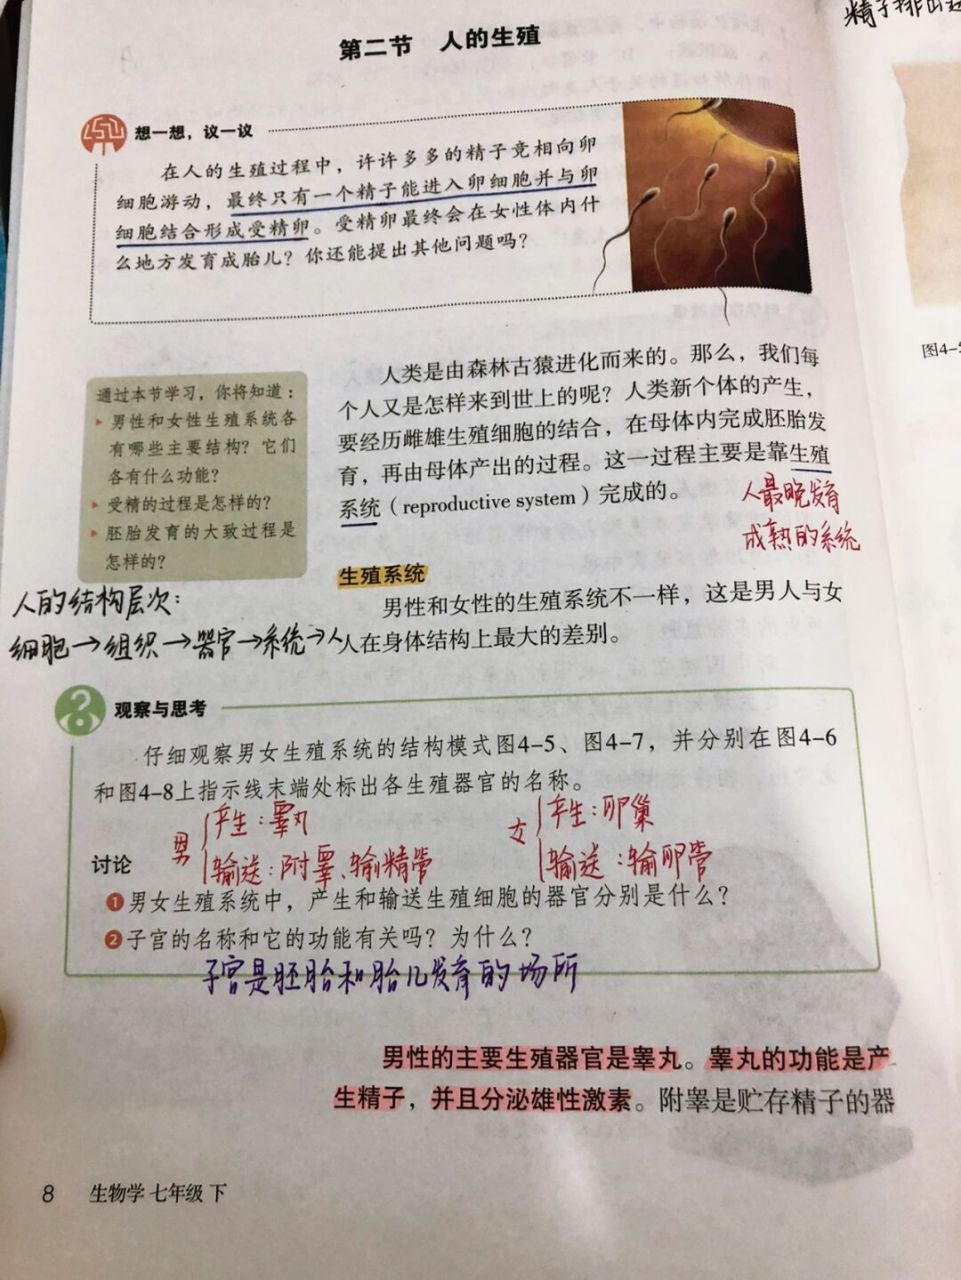 精子排出
第二节 人的生殖
想一想，议一议
在人的生殖过程中，许许多多的精子竞相向卵
细胞游动，最终只有一个精子能进入卵细胞并与卵
细胞结合形成受精卵。受精卵最终会在女性体内什
么地方发育成胎儿？你还能提出其他问题吗？
图4-
通过本节学习，你将知道：
▸ 男性和女性生殖系统各
有哪些主要结构？它们
各有什么功能？
▸ 受精的过程是怎样的？
▸ 胚胎发育的大致过程是
怎样的？
人类是由森林古猿进化而来的。那么，我们每
个人又是怎样来到世上的呢？人类新个体的产生，
要经历雌雄生殖细胞的结合，在母体内完成胚胎发
育，再由母体产出的过程。这一过程主要是靠生殖
系统（reproductive system）完成的。
人最晚发育
成熟的系统
生殖系统
人的结构层次：
细胞→组织→器官→系统→人
男性和女性的生殖系统不一样，这是男人与女
人在身体结构上最大的差别。
观察与思考
仔细观察男女生殖系统的结构模式图4-5、图4-7，并分别在图4-6
和图4-8上指示线末端处标出各生殖器官的名称。
男
产生：睾丸
输送：附睾、输精管
女
产生：卵巢
输送：输卵管
讨论
❶ 男女生殖系统中，产生和输送生殖细胞的器官分别是什么？
❷ 子宫的名称和它的功能有关吗？为什么？
子宫是胚胎和胎儿发育的场所
男性的主要生殖器官是睾丸。睾丸的功能是产
生精子，并且分泌雄性激素。附睾是贮存精子的器
8 生物学 七年级 下